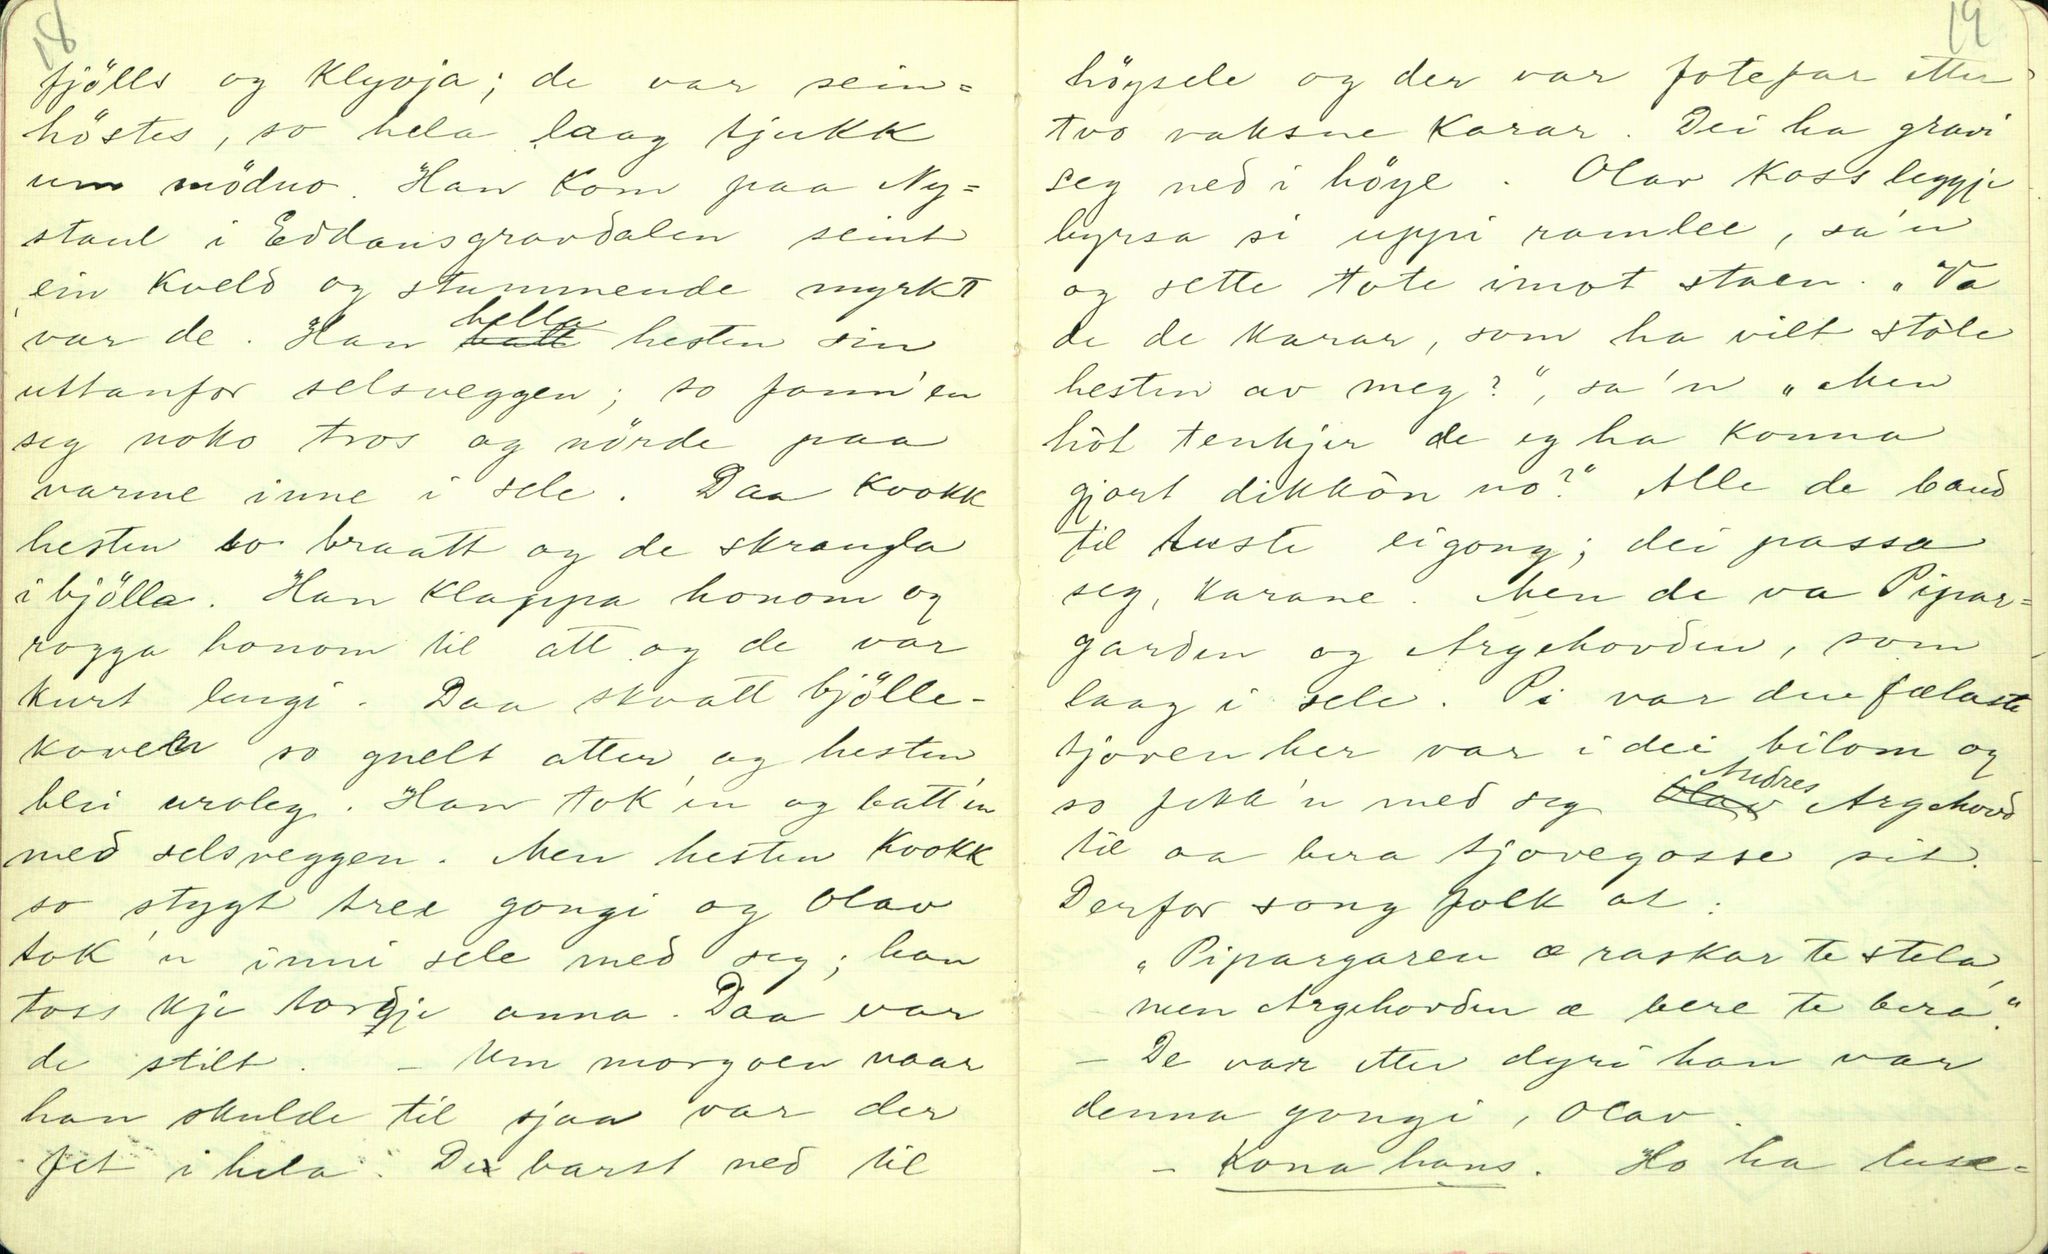 18
fjölls og Klyvja; de var sein=
höstes, so hela laag tjukk
um mödno. Han kom paa Ny=
staul i Eddansgravdalen seint
ein kveld og stummende myrkt
var de. Han hella hesten sin
uttanfor selsveggen; so fann'en
seg noko tros og nörde paa
varme inne i sele. Daa kvokk
hesten so braatt og de skrangla
i bjölla. Han klappa honom og
rogga honom til att og de var
kurt lengi. Daa skvatt bjölle-
kaven so gnelt atter og hesten
blei uroleg. Han tok'en og batt'en
med selsveggen. Men hesten kvokk
so stygt tree gongi og Olav
tok'n inni sele med seg; han
toss kje tordje anna. Daa var
de stilt. - Um morgoen naar
han skulde til sjaa var der
fet i hela. De barst ned til
19
höysele og der var fotefar etter
tvo vaksne karar. Dei ha gravi
seg ned i höye. Olav Koss leggje
byrsa si uppi ramlee, sa'n
og sette tote imot staen. "Va
de de karar, som ha vilt stöle
hesten av meg?", sa'n "Men
hòt tenkjer de eg ha konna
gjort dikkòn no?" Alle de baud
til huste eigong; dei passa
seg, karane. Men de va Pipar=
garden og Argehovden, som
laag i sele. Pi var den fælaste
tjoven her var i dei bilom og
so fekk'n med seg Andres Argehovd
til aa bera tjovegosse sit.
Derfor song folk at:
"Pipargaren æ raskar te stela,
men Argehovden æ bere te bera."
- De var etter dyri han var
denna gongi, Olav.
- Kona hans. Ho ha luse=